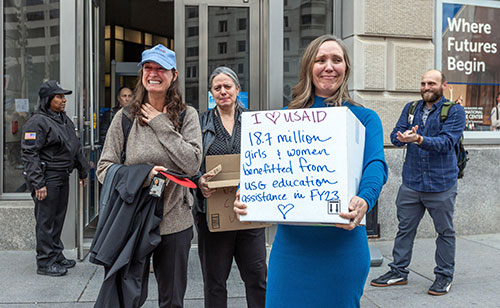 Where
Futures
Begin
I ♡ USAID
18.7 million
girls & women
benefitted from
USG education
assistance in FY23
♡